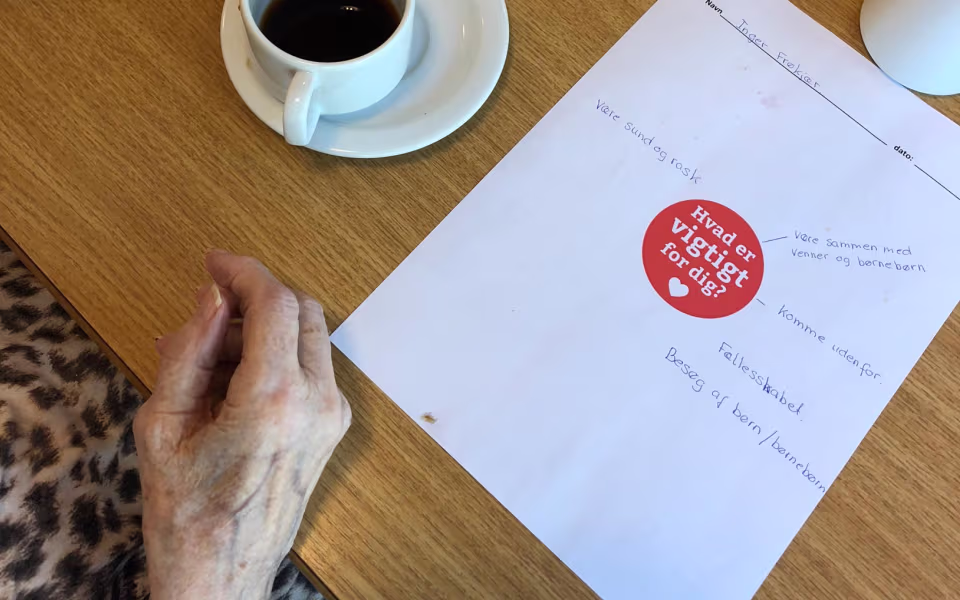 Navn Inger Frøkjær
dato:
Være sund og rask
Hvad er
vigtigt
for dig?
være sammen med
venner og børnebørn
Komme udenfor.
Fællesskabet.
Besøg af børn/børnebørn